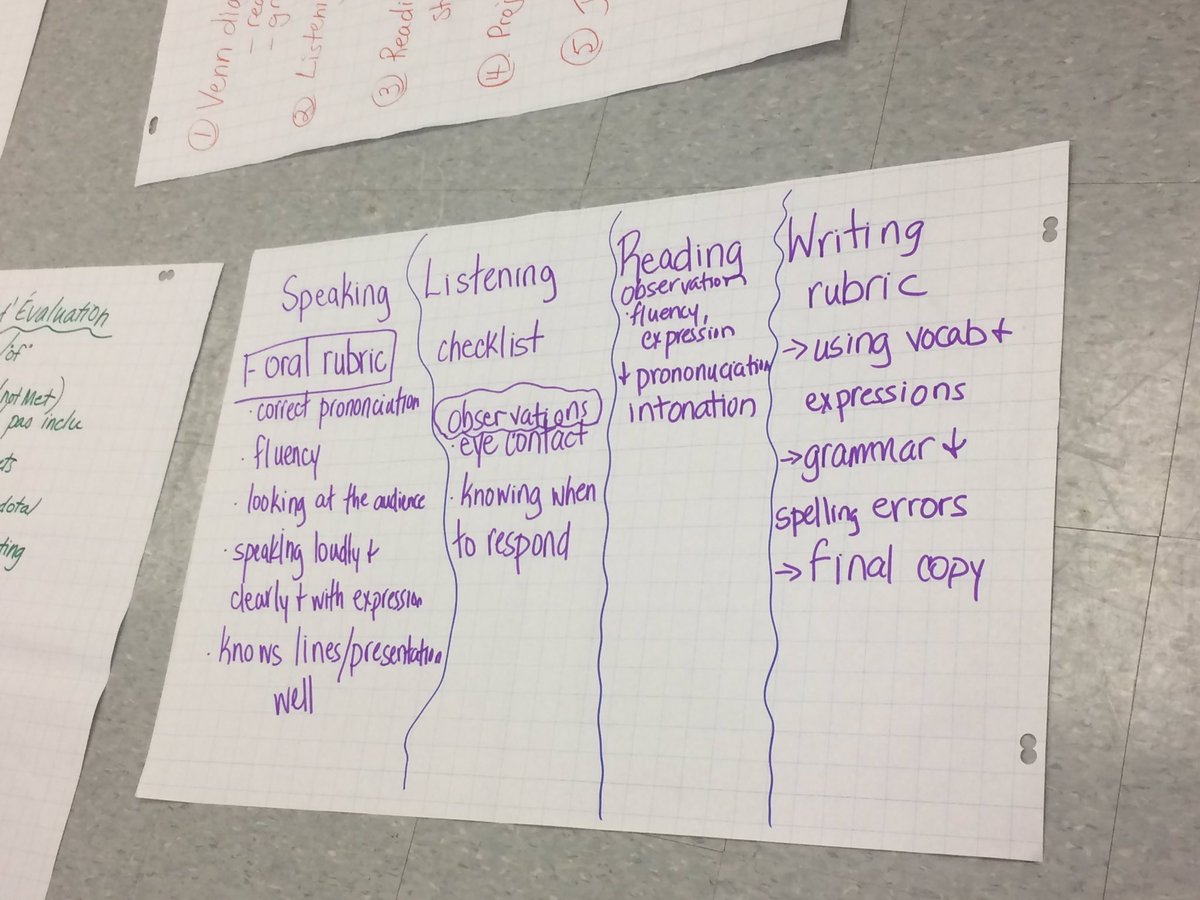 ① Venn
② Listeni
③ Readi
④ Proj
⑤
d'Évaluation
"of"
not Met)
pas inclu
Speaking
- oral rubric
· correct prononciation
· fluency
· looking at the audience
· speaking loudly +
clearly + with expression
· knows lines/presentation
well
Listening
checklist
observations
· eye contact
· knowing when
to respond
Reading
observation
· fluency,
expression
+ prononuciation
intonation
Writing
rubric
→ using vocab +
expressions
→ grammar +
spelling errors
→ final copy